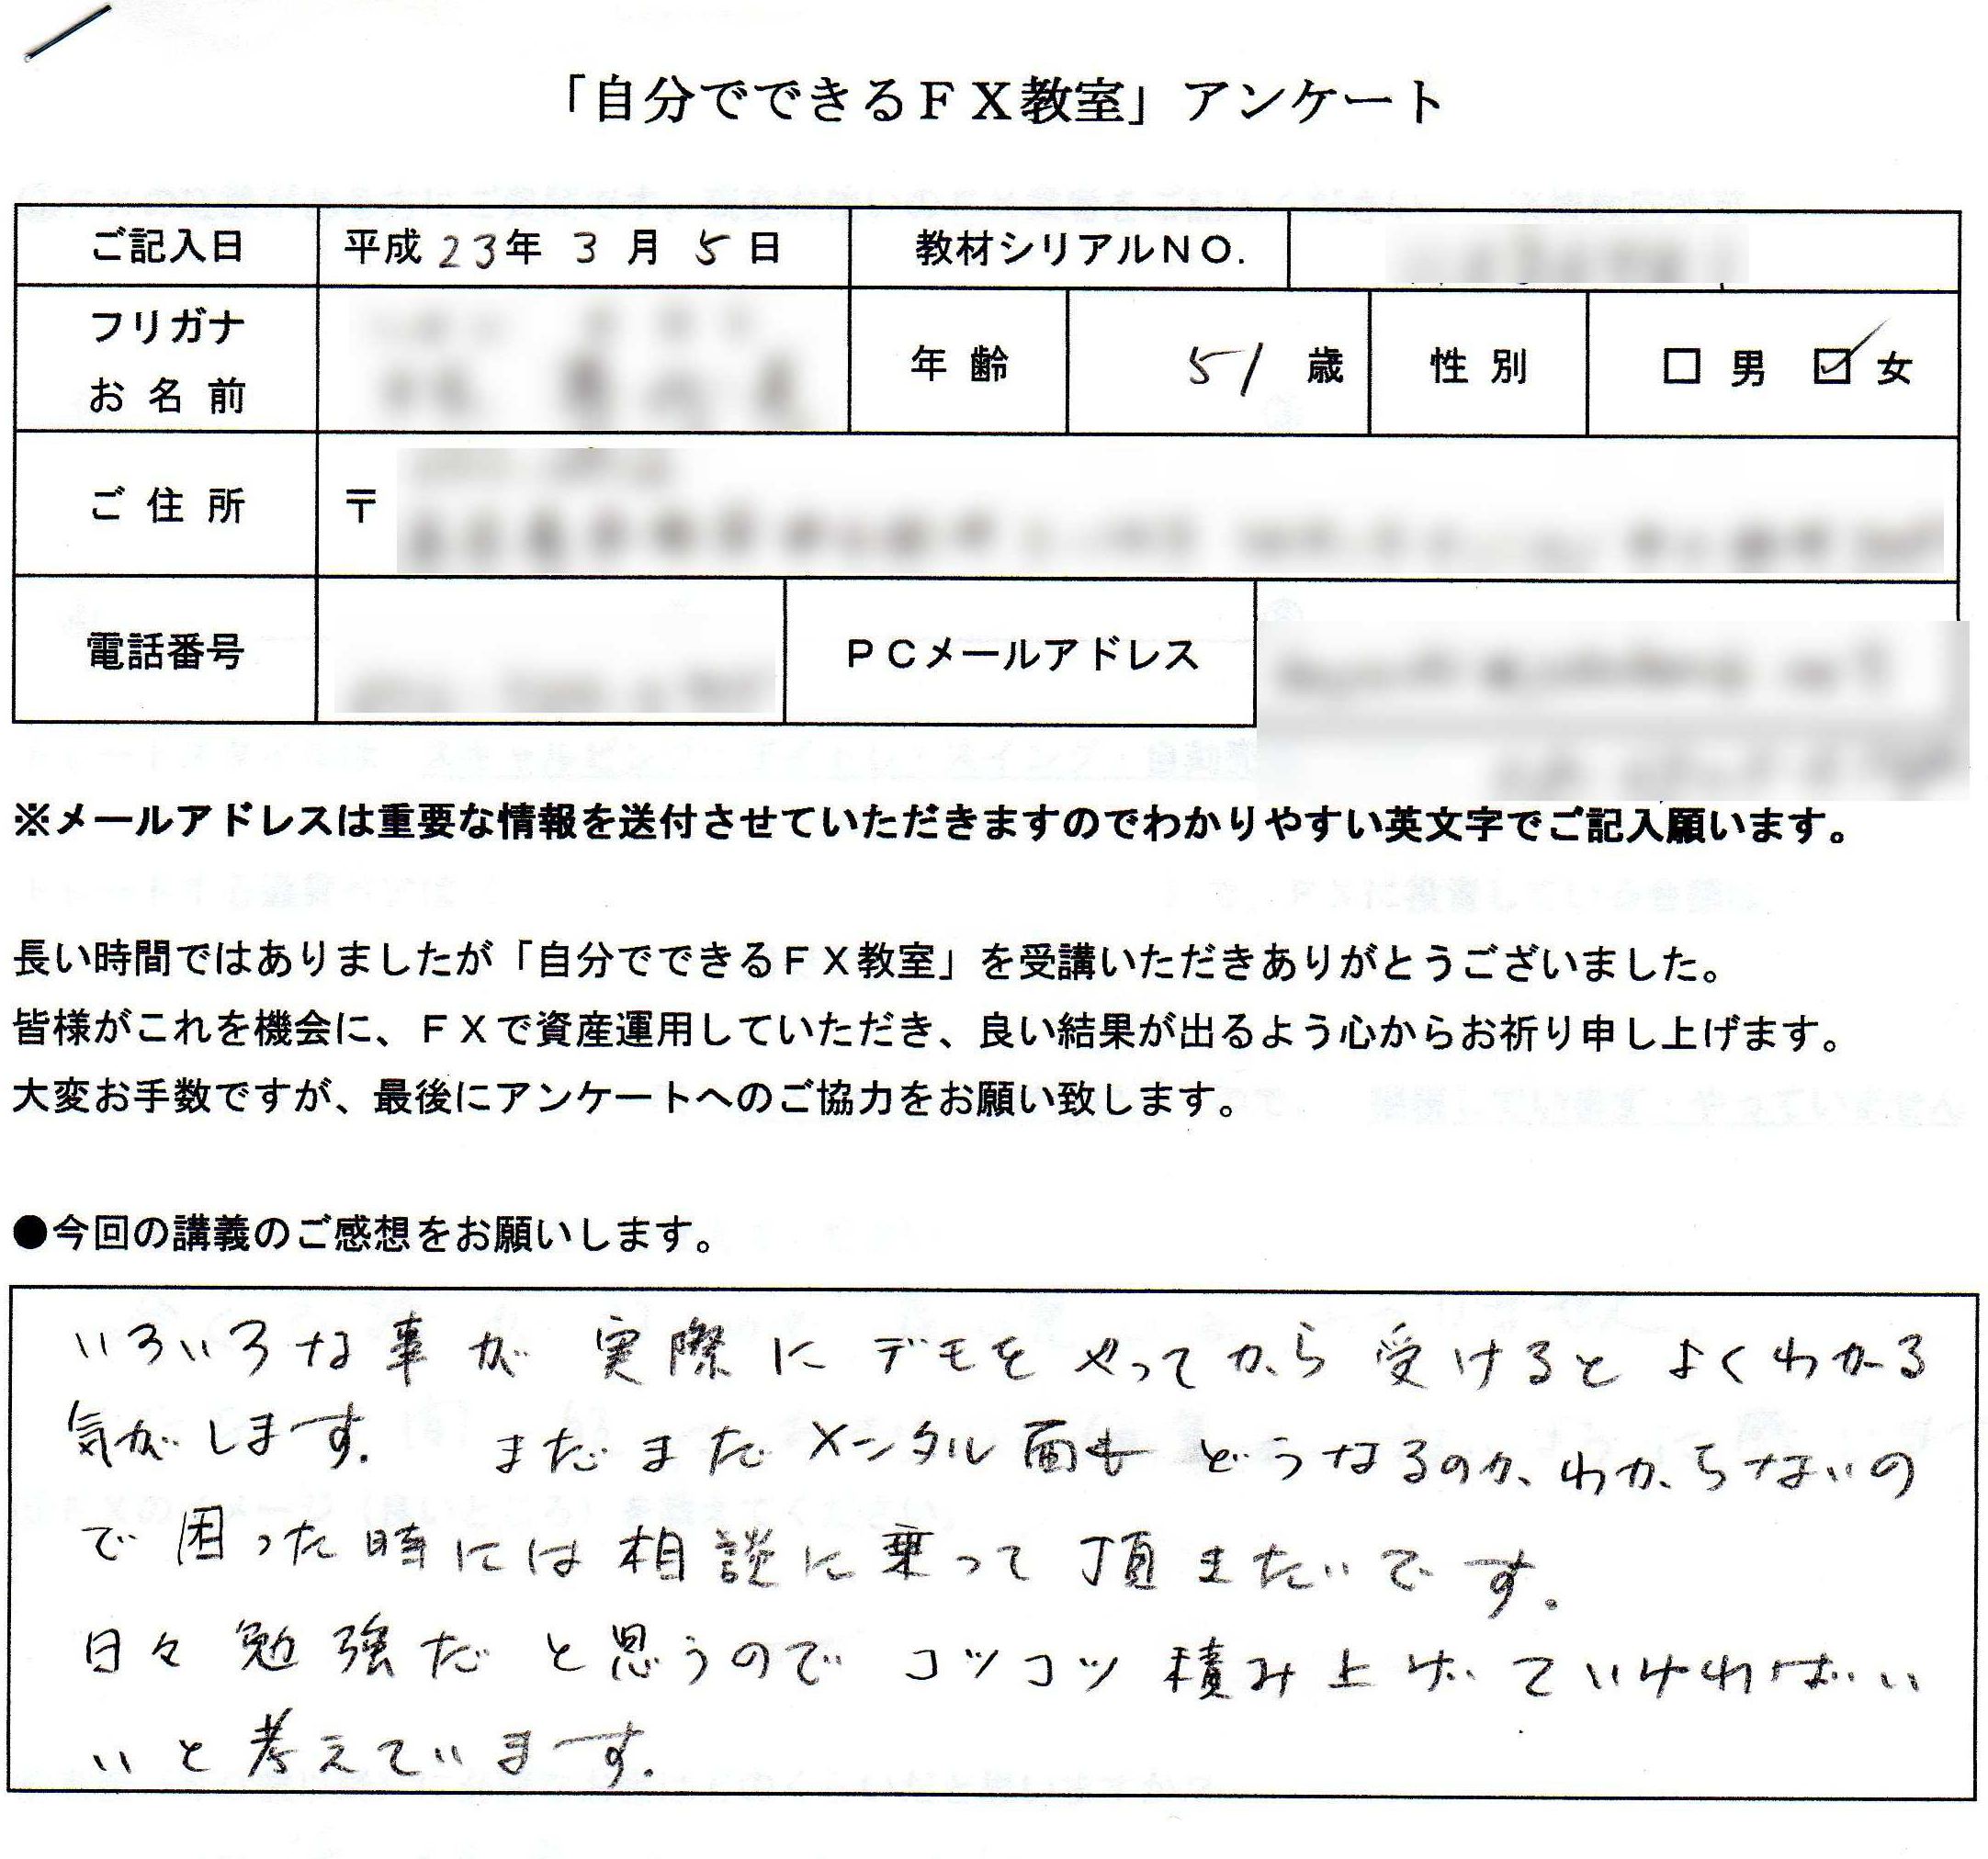 「自分でできるＦＸ教室」アンケート
ご記入日 平成 23年 3 月 5 日 教材シリアルＮＯ.
フリガナ
お 名 前 年 齢 51 歳 性 別 □ 男 ☑ 女
ご 住 所 〒
電話番号 ＰＣメールアドレス
※メールアドレスは重要な情報を送付させていただきますのでわかりやすい英文字でご記入願います。
長い時間ではありましたが「自分でできるＦＸ教室」を受講いただきありがとうございました。
皆様がこれを機会に、ＦＸで資産運用していただき、良い結果が出るよう心からお祈り申し上げます。
大変お手数ですが、最後にアンケートへのご協力をお願い致します。
●今回の講義のご感想をお願いします。
いろいろな事が 実際に デモを やってから 受けると よくわかる
気がします. まだまだ メンタル面も どうなるのか、わからないの
で 困った時には 相談に乗って 頂きたいです.
日々勉強だと思うので コツコツ 積み上げていければい
いと考えています.